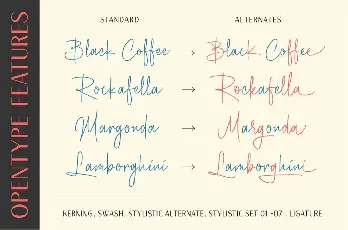 OPENTYPE FEATURES
STANDARD ALTERNATES
Black Coffee → Black Coffee
Rockafella → Rockafella
Margonda → Margonda
Lamborghini → Lamborghini
KERNING, SWASH, STYLISTIC ALTERNATE, STYLISTIC SET 01 -07 , LIGATURE